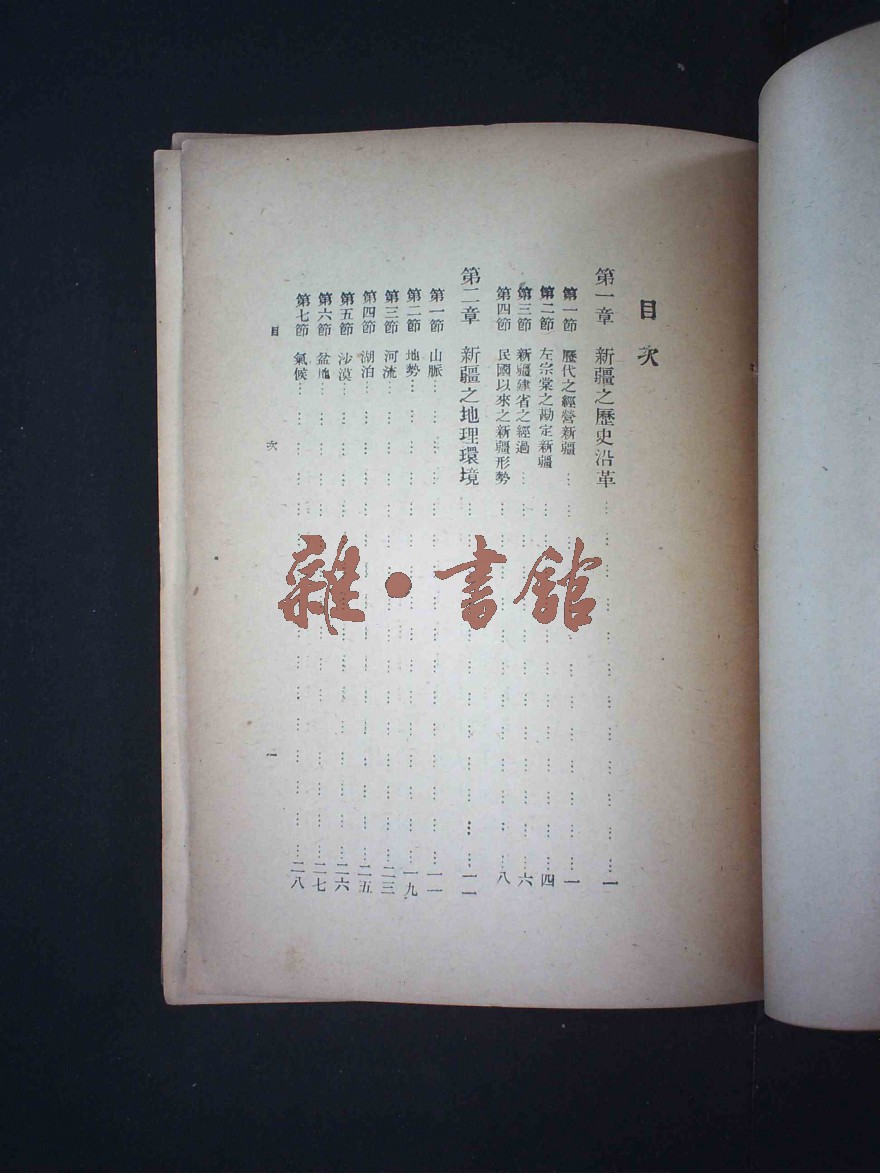 目次
第一章 新疆之歷史沿革……一
第一節 歷代之經營新疆……一
第二節 左宗棠之勘定新疆……四
第三節 新疆建省之經過……六
第四節 民國以來之新疆形勢……八
第二章 新疆之地理環境……一一
第一節 山脈……一一
第二節 地勢……一九
第三節 河流……二三
第四節 湖泊……二五
第五節 沙漠……二六
第六節 盆地……二七
第七節 氣候……二八
目次 一
雜·書館